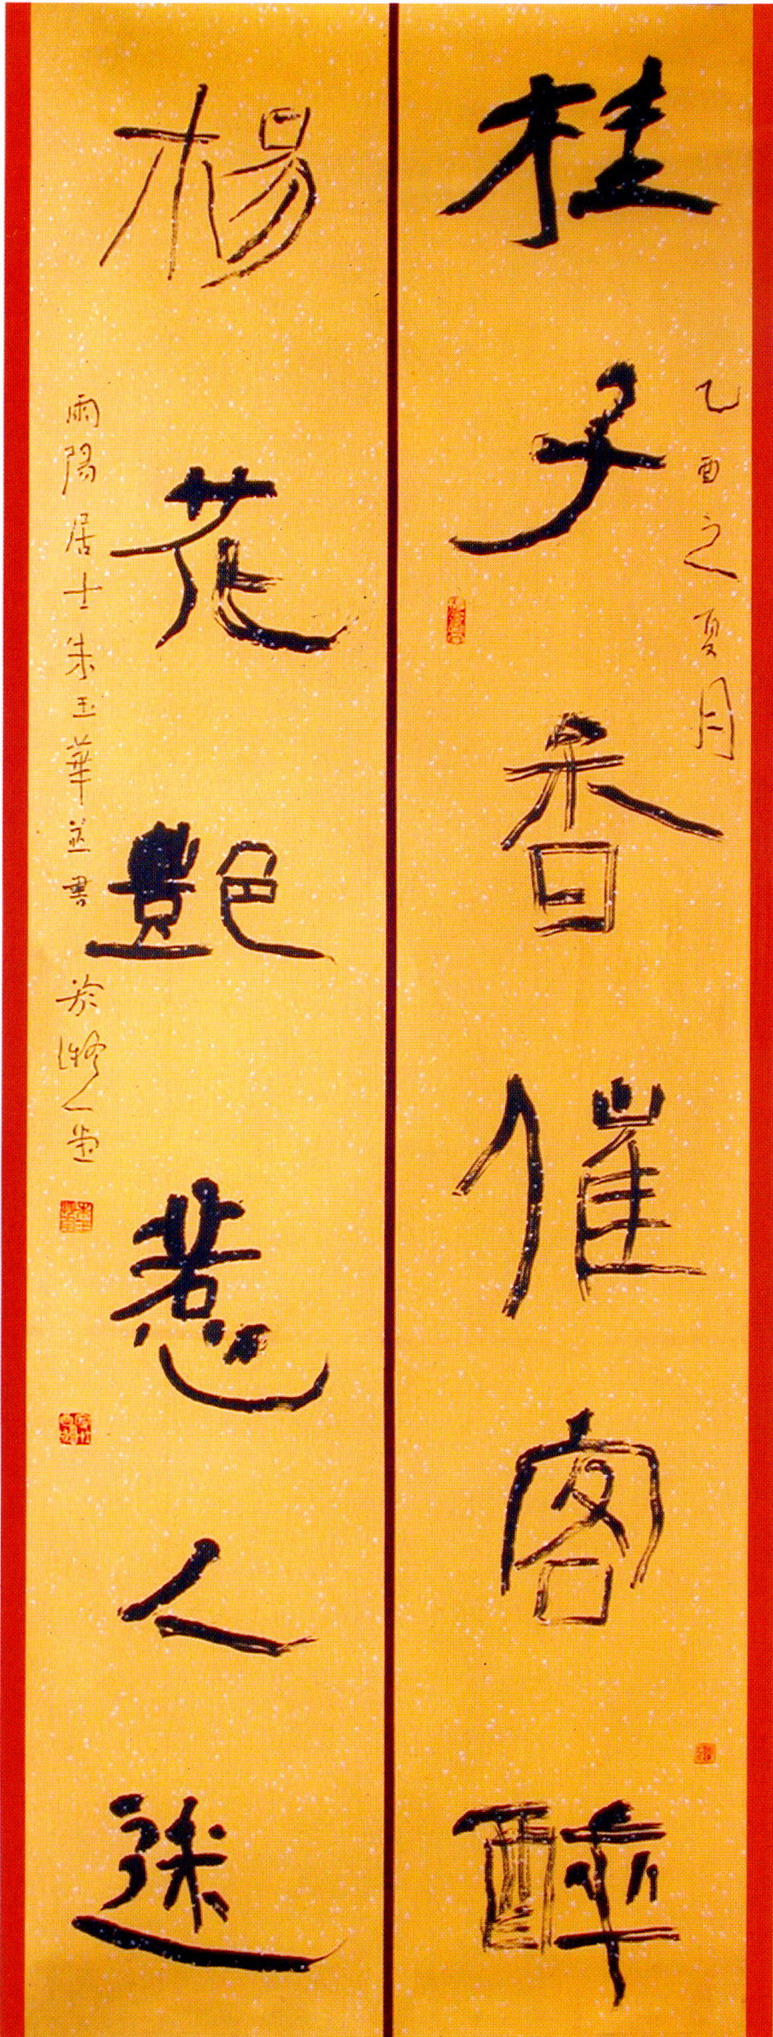 乙酉之夏月
桂子香催客醉
楊花艷惹人迷
雨陽居士朱玉華並書於